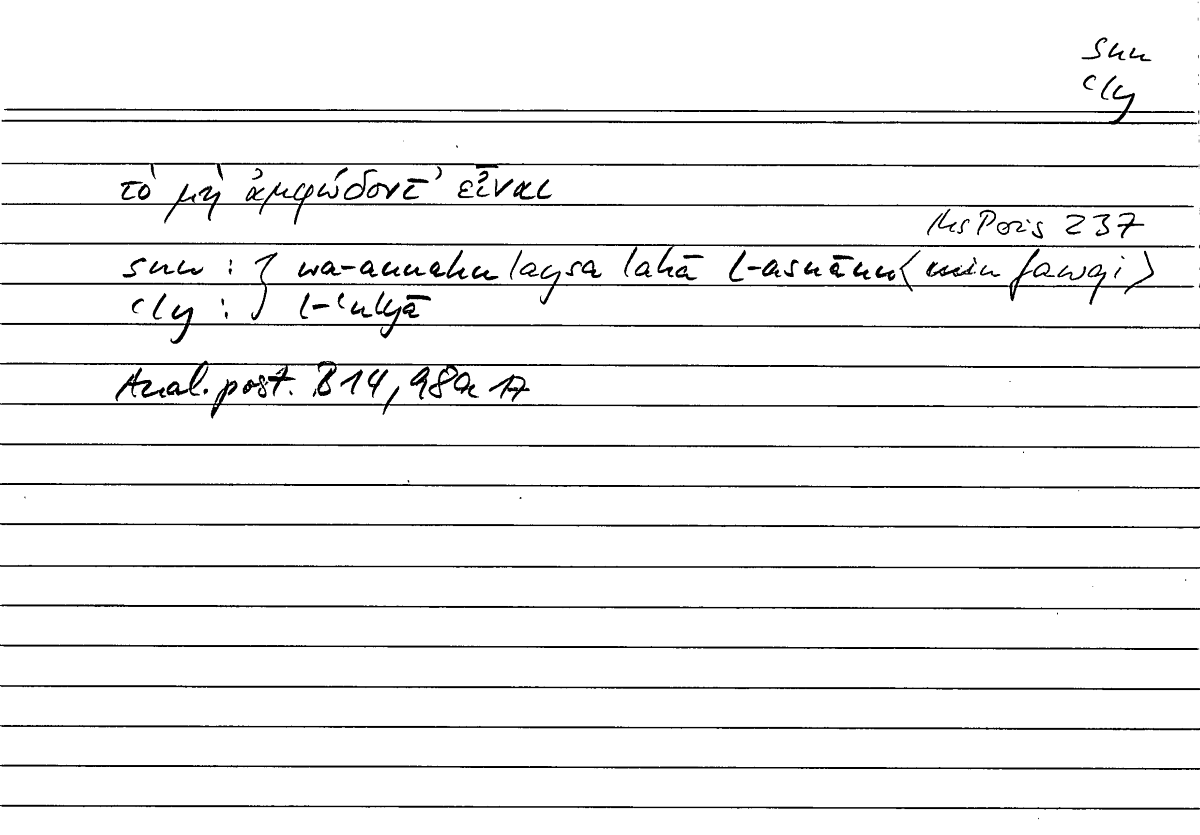 snn
ʿly
τὸ μὴ ἀμφώδοντ᾽ εἶναι
Ms Paris 237
snn : } wa-annahu laysa lahā l-asnānu < min fawqi >
ʿly : } l-ʿulyā
Anal. post. B 14, 98a 17